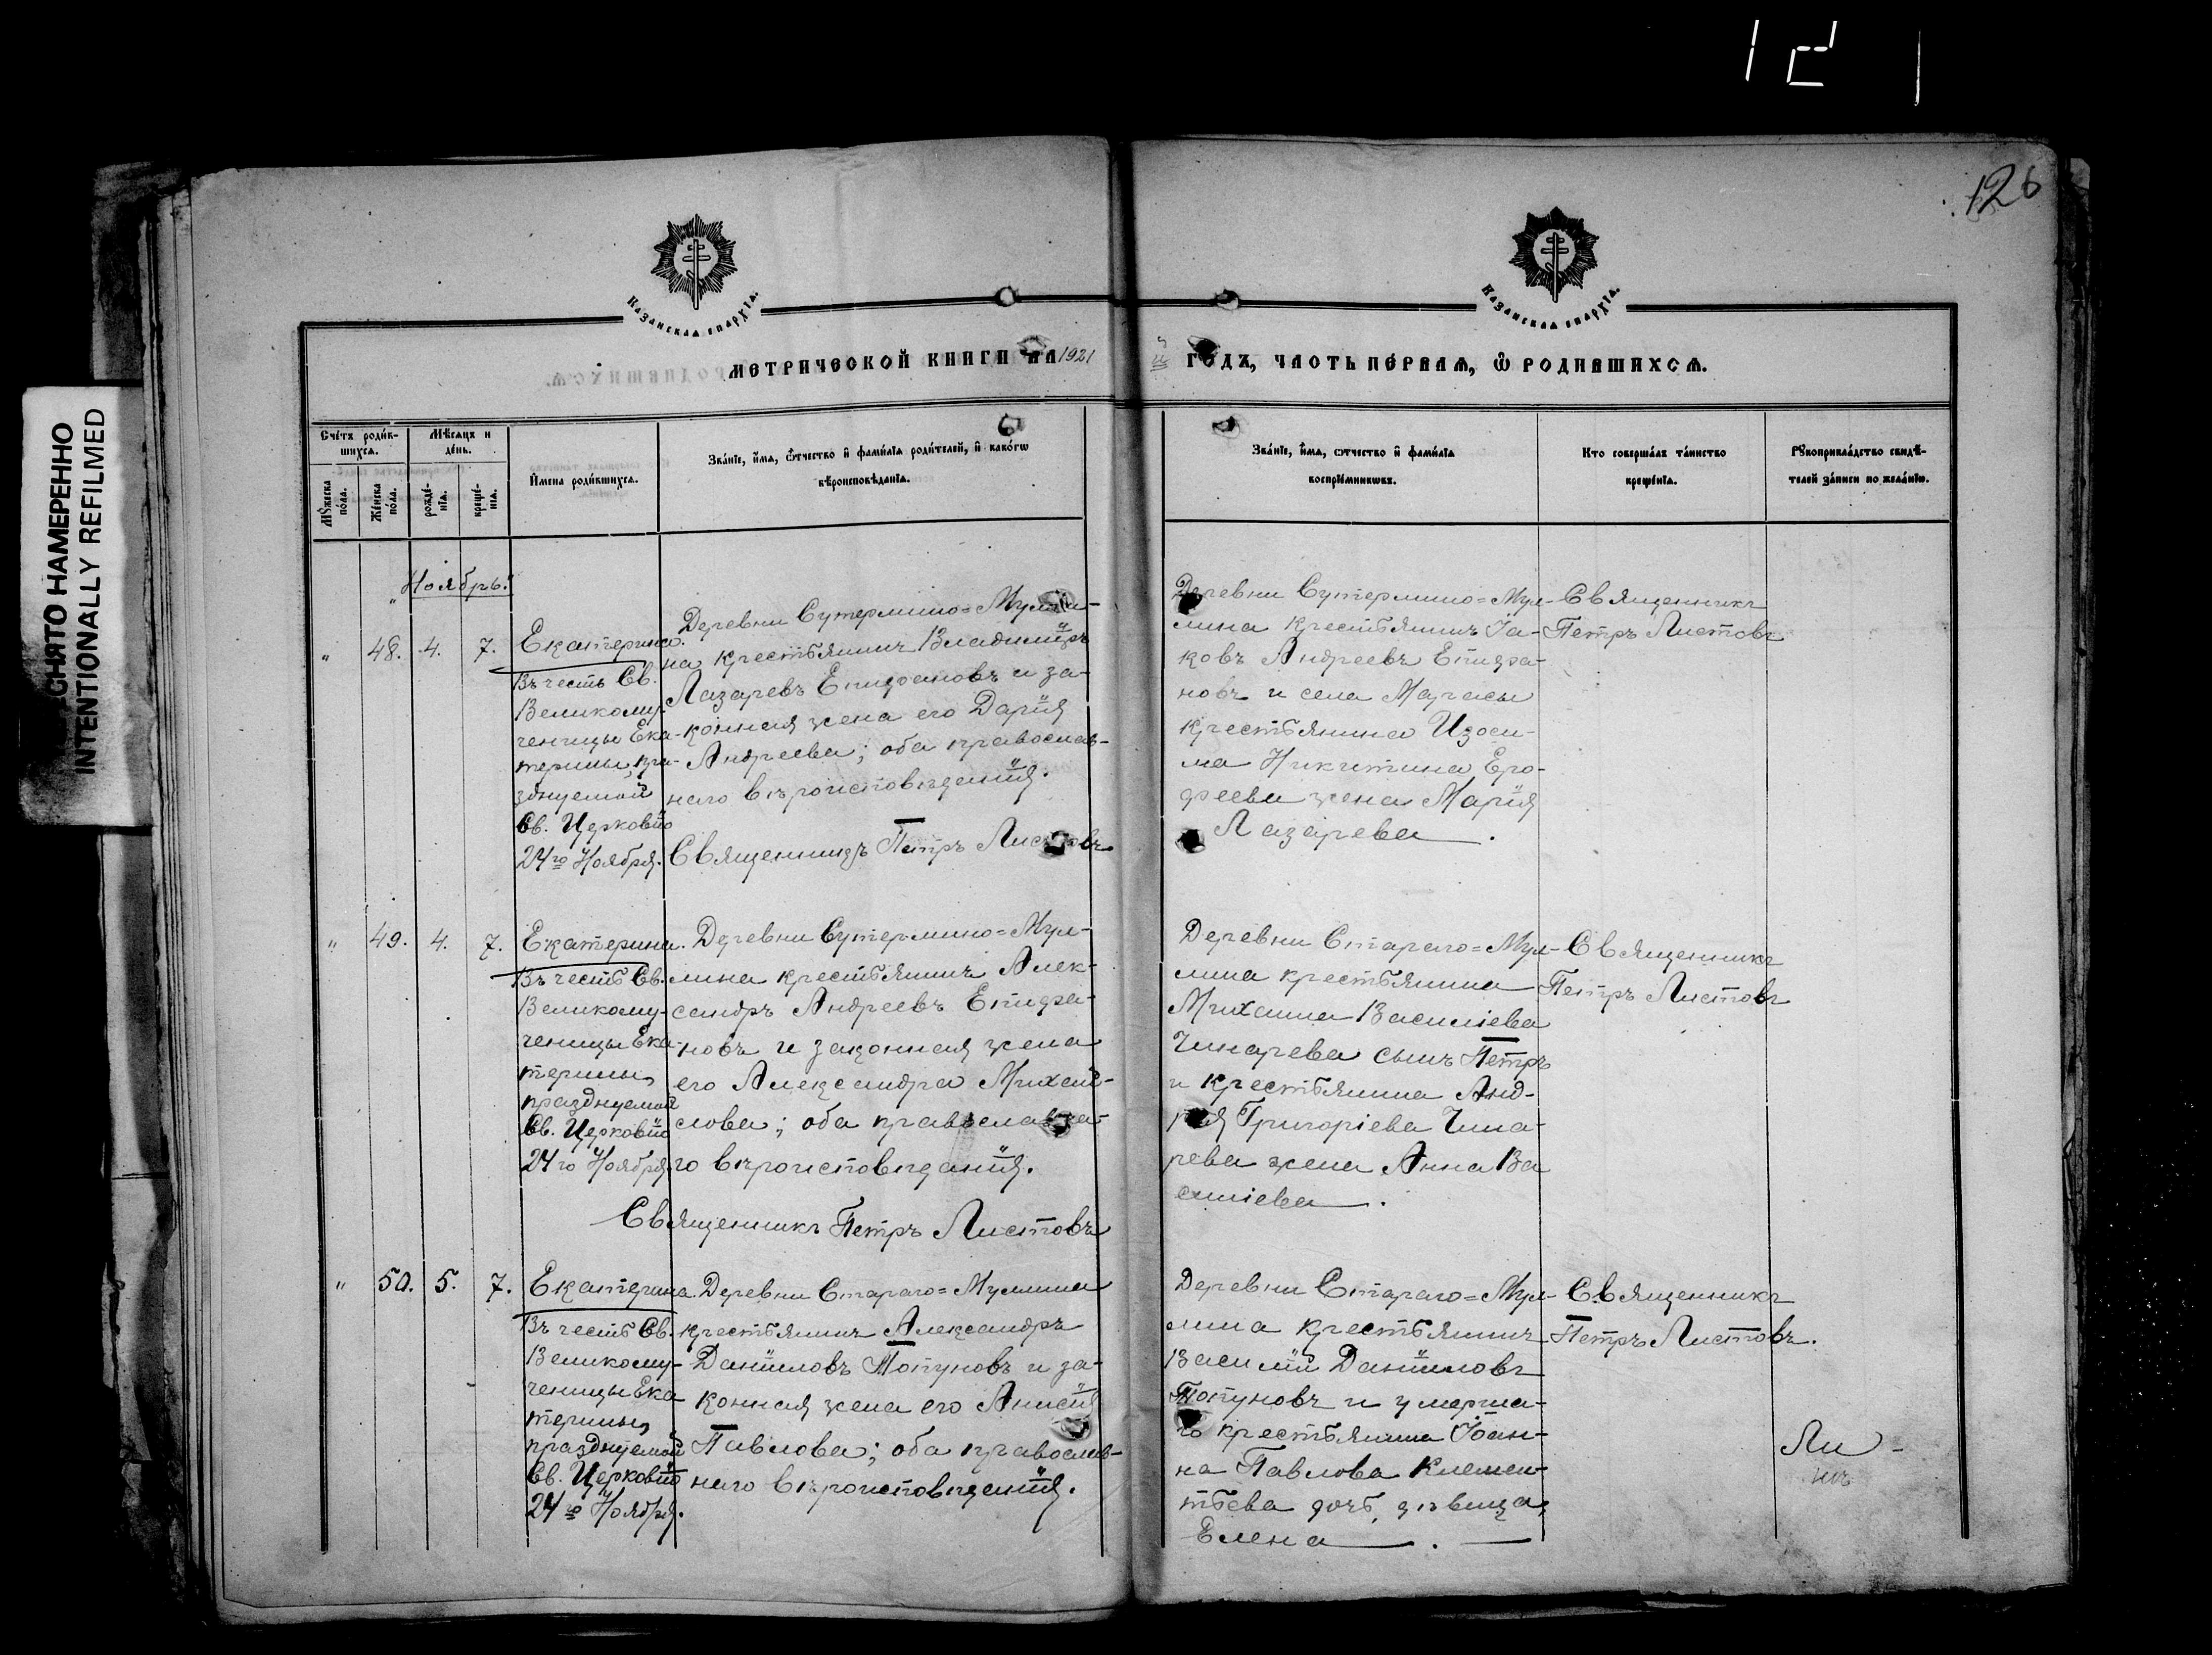 121
126
СНЯТО НАМЕРЕННО
INTENTIONALLY REFILMED
Казанская епархїѧ.
Казанская епархїѧ.
МЕТРИЧЕСКОЙ КНИГИ НА 1921
й ГОДЪ, ЧАСТЬ ПЕРВАѦ, Ѿ РОДИВШИХСѦ.
Счéтъ роди́в-
шихсѧ.
Мѣсяцъ и
дéнь.
Мꙋ́жеска
пóла.
Жéнска
пóла.
рождé-
нїѧ.
крещé-
нїѧ.
И҆мена роди́вшихсѧ.
Звáнїе, и҆́мѧ, ѻ҆́тчество и҆ фами́лїѧ роди́телей, и҆ какóгѡ
вѣроисповѣ́данїѧ.
Звáнїе, и҆́мѧ, ѻтчество и҆ фами́лїѧ
воспрїéмникѡвъ.
Кто совершáлъ тáинство
крещéнїѧ.
Рꙋкоприклáдство свидѣ́-
телей зáписи по желáнїю.
"Ноябрь."
" 48. 4. 7.
Екатерина.
Въ честь Св.
Великому-
ченицы Ека-
терины, пра-
зднуемой
Св. Церковію
24го Ноября.
Деревни Сутермино=Мулли-
на крестьянинъ Владиміръ
Лазаревъ Епифановъ и за-
конная жена его Дарія
Андреева; оба православ-
наго вѣроисповѣданія.
Священникъ Петръ Листовъ
Деревни Сутермино=Мул-
лина крестьянинъ Іа-
ковъ Андреевъ Епифа-
новъ и села Магасы
крестьянина Изоси-
ма Никитина Еро-
феева жена Марія
Лазарева.
Священникъ
Петръ Листовъ
" 49. 4. 7.
Екатерина.
Въ честь Св.
Великому-
ченицы Ека-
терины,
празднуемой
Св. Церковію
24го Ноября.
Деревни Сутермино=Мул-
лина крестьянинъ Алек-
сандръ Андреевъ Епифа-
новъ и законная жена
его Александра Михай-
лова; оба православна-
го вѣроисповѣданія.
Священникъ Петръ Листовъ
Деревни Стараго=Мул-
лина крестьянина
Михаила Василіева
Чинарева сынъ Петръ
и крестьянина Анд-
рея Григоріева Чина-
рева жена Анна Ва
силіева.
Священникъ
Петръ Листовъ
" 50. 5. 7.
Екатерина.
Въ честь Св.
Великому-
ченицы Ека
терины,
празднуемой
Св. Церковію
24го Ноября.
Деревни Стараго=Муллина
крестьянинъ Александръ
Даніиловъ Топуновъ и за-
конная жена его Анисія
Павлова; оба православ-
наго вѣроисповѣданія.
Деревни Стараго=Мул-
лина крестьянинъ
Василій Даніиловъ
Топуновъ и умерша-
го крестьянина Іоан-
на Павлова Климен-
тьева дочь, дѣвица,
Елена.
Священникъ
Петръ Листовъ.
Ли-